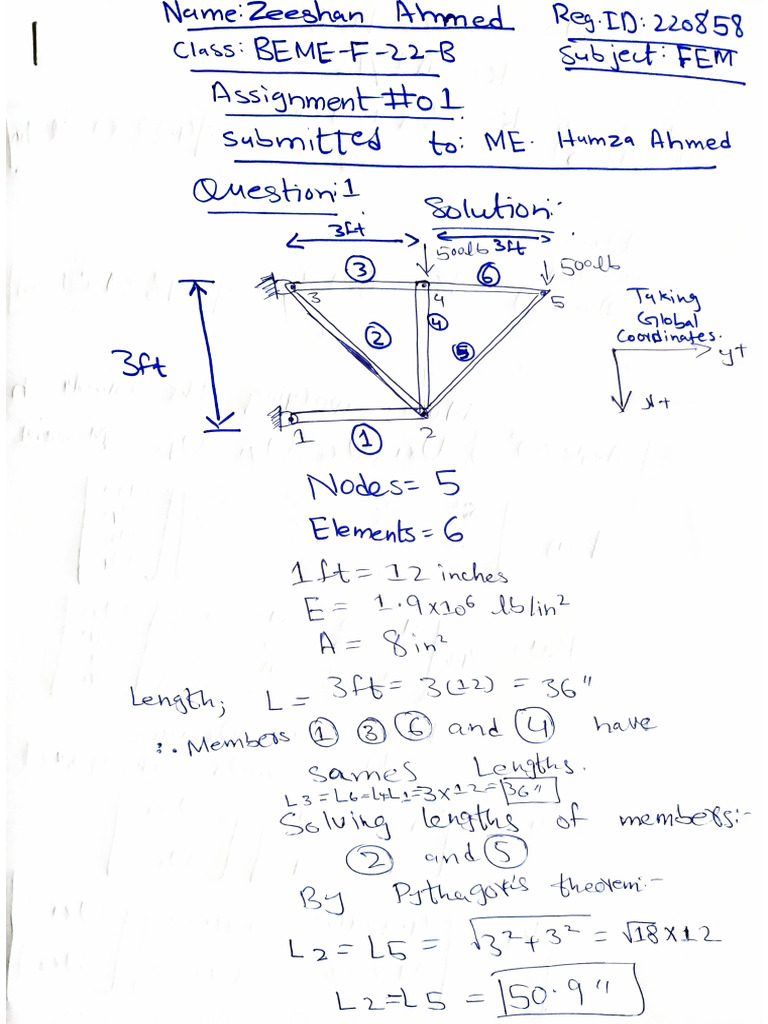 Name: Zeeshan Ahmed Reg.ID: 220858
Class: BEME-F-22-B Subject: FEM
Assignment #01
Submitted to: ME. Humza Ahmed
Question:1 Solution:-
3ft 500lb 3ft 500lb
3 6
3 4 5
2 4 5
3ft
Taking
Global
Coordinates.
y+
x+
1 2
1
Nodes = 5
Elements = 6
1ft = 12 inches
E = 1.9x10⁶ lb/in²
A = 8in²
Length; L = 3ft = 3(12) = 36"
∴ Members ① ③ ⑥ and ④ have
sames Lengths.
L3=L6=L4L1=3x12=36"
Solving lengths of members:-
② and ⑤
By Pythagor's theorem:-
L2 = L5 = √3²+3² = √18x12
L2=L5 = 50.9"